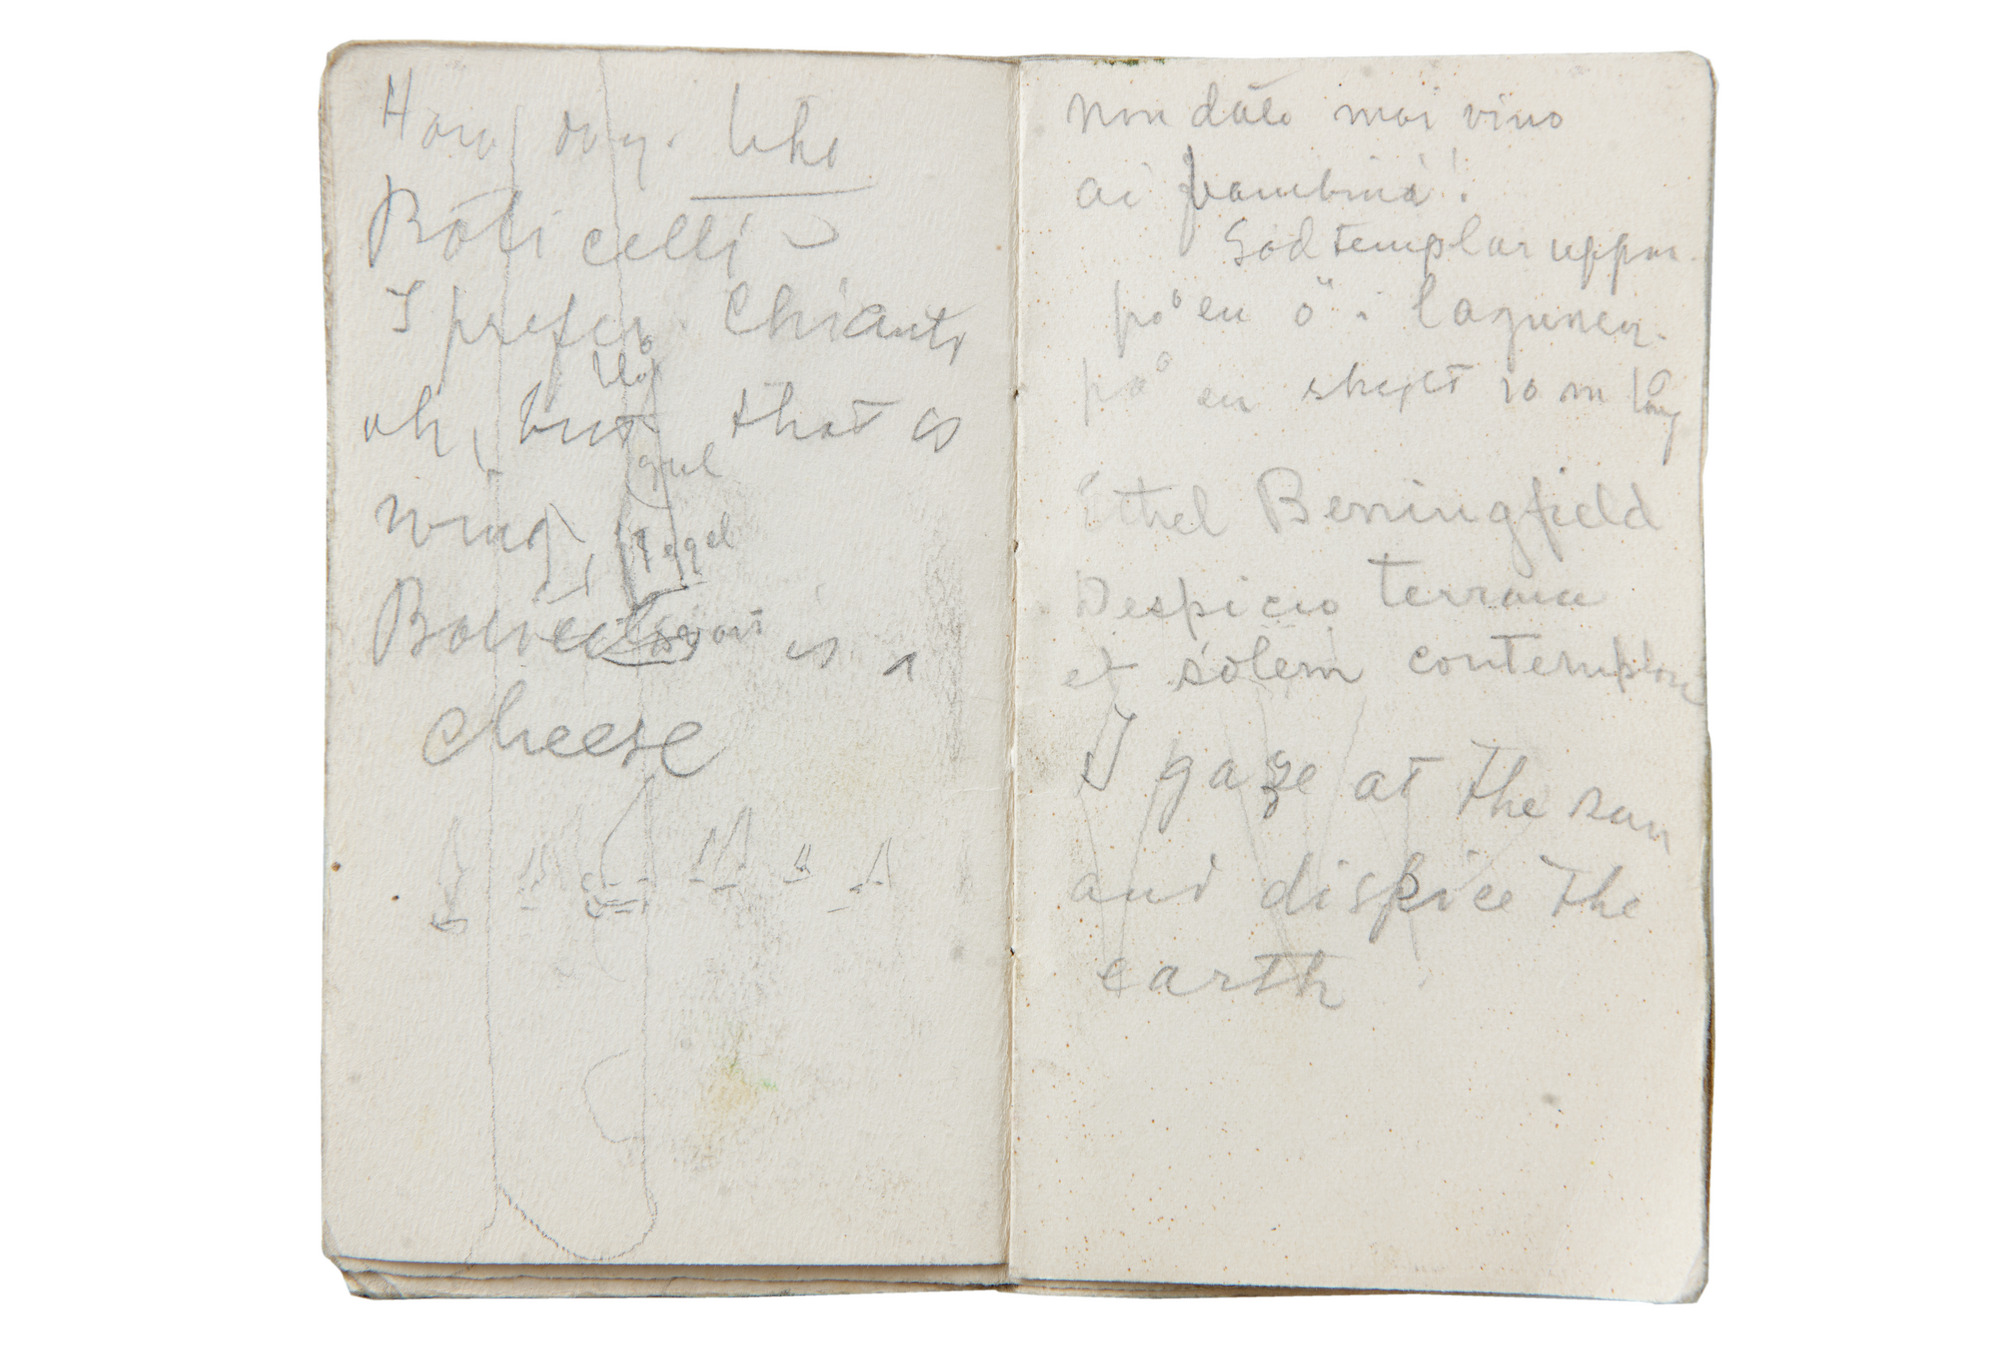 How do you like
Boticelli
I prefer Chianti
blå
oh, but that is
gul
wine,
Tegel
is a
cheese
non date mai vino
ai bambini!
Godtemplar uppar
på en ö i lagunen.
på en skylt 10 m lång
Ethel Benningfield
Despicio terram
et solem contemplor
I gaze at the sun
and dispice the
earth